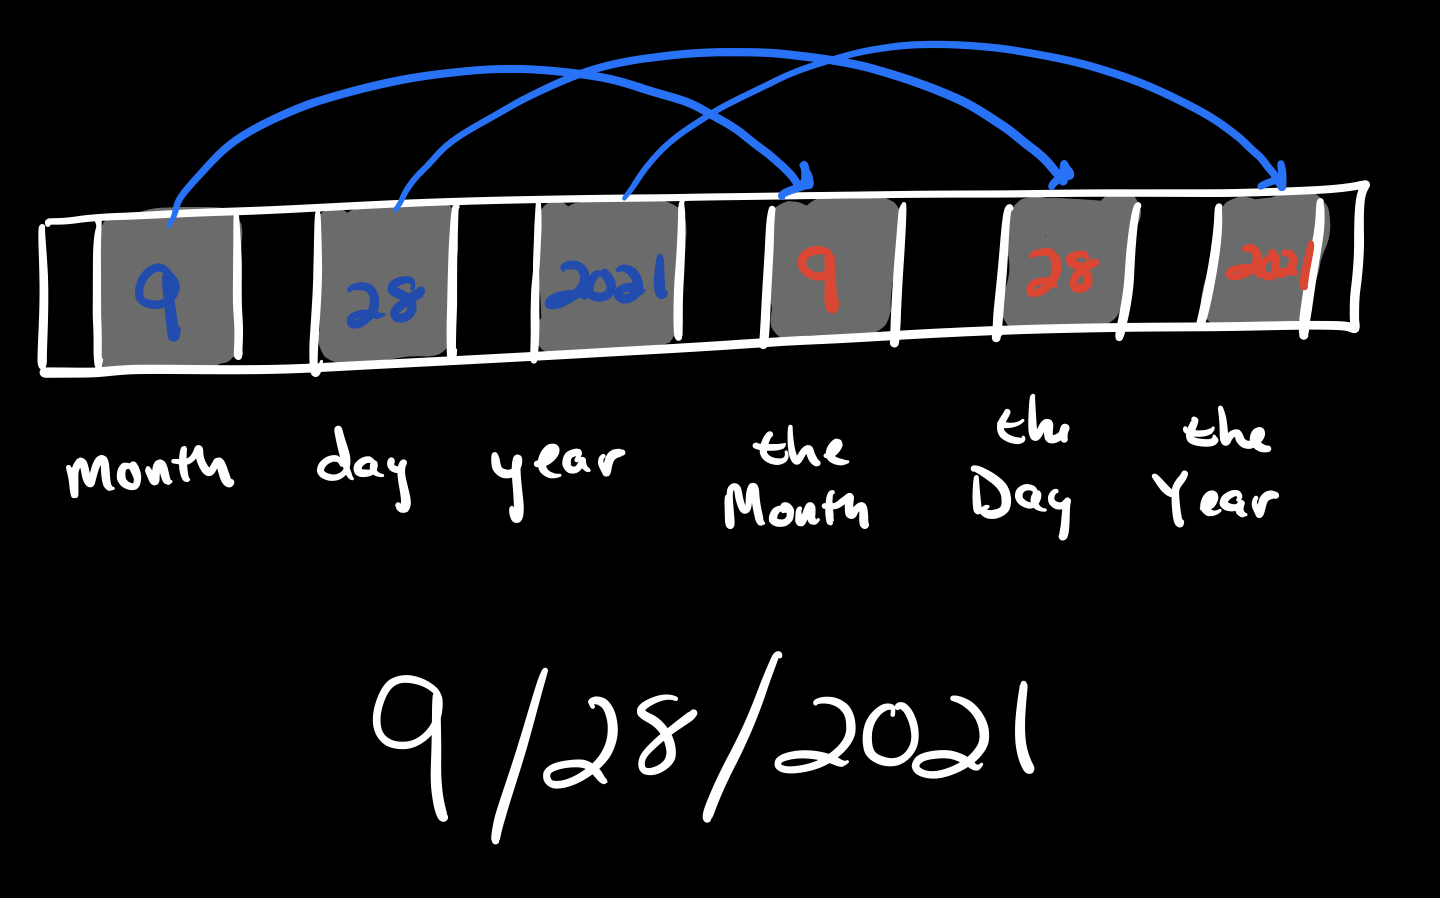 9 28 2021 9 28 2021
month day year the Month the Day the Year
9/28/2021